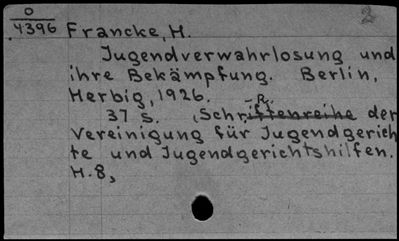 O
4396 Francke, H.
2
Jugendverwahrlosung und
ihre Bekämpfung. Berlin,
Herbig, 1926.
-R.
37 S. (Schriftenreihe der
Vereinigung für Jugendgerich
te und Jugendgerichtshilfen.
H.8)